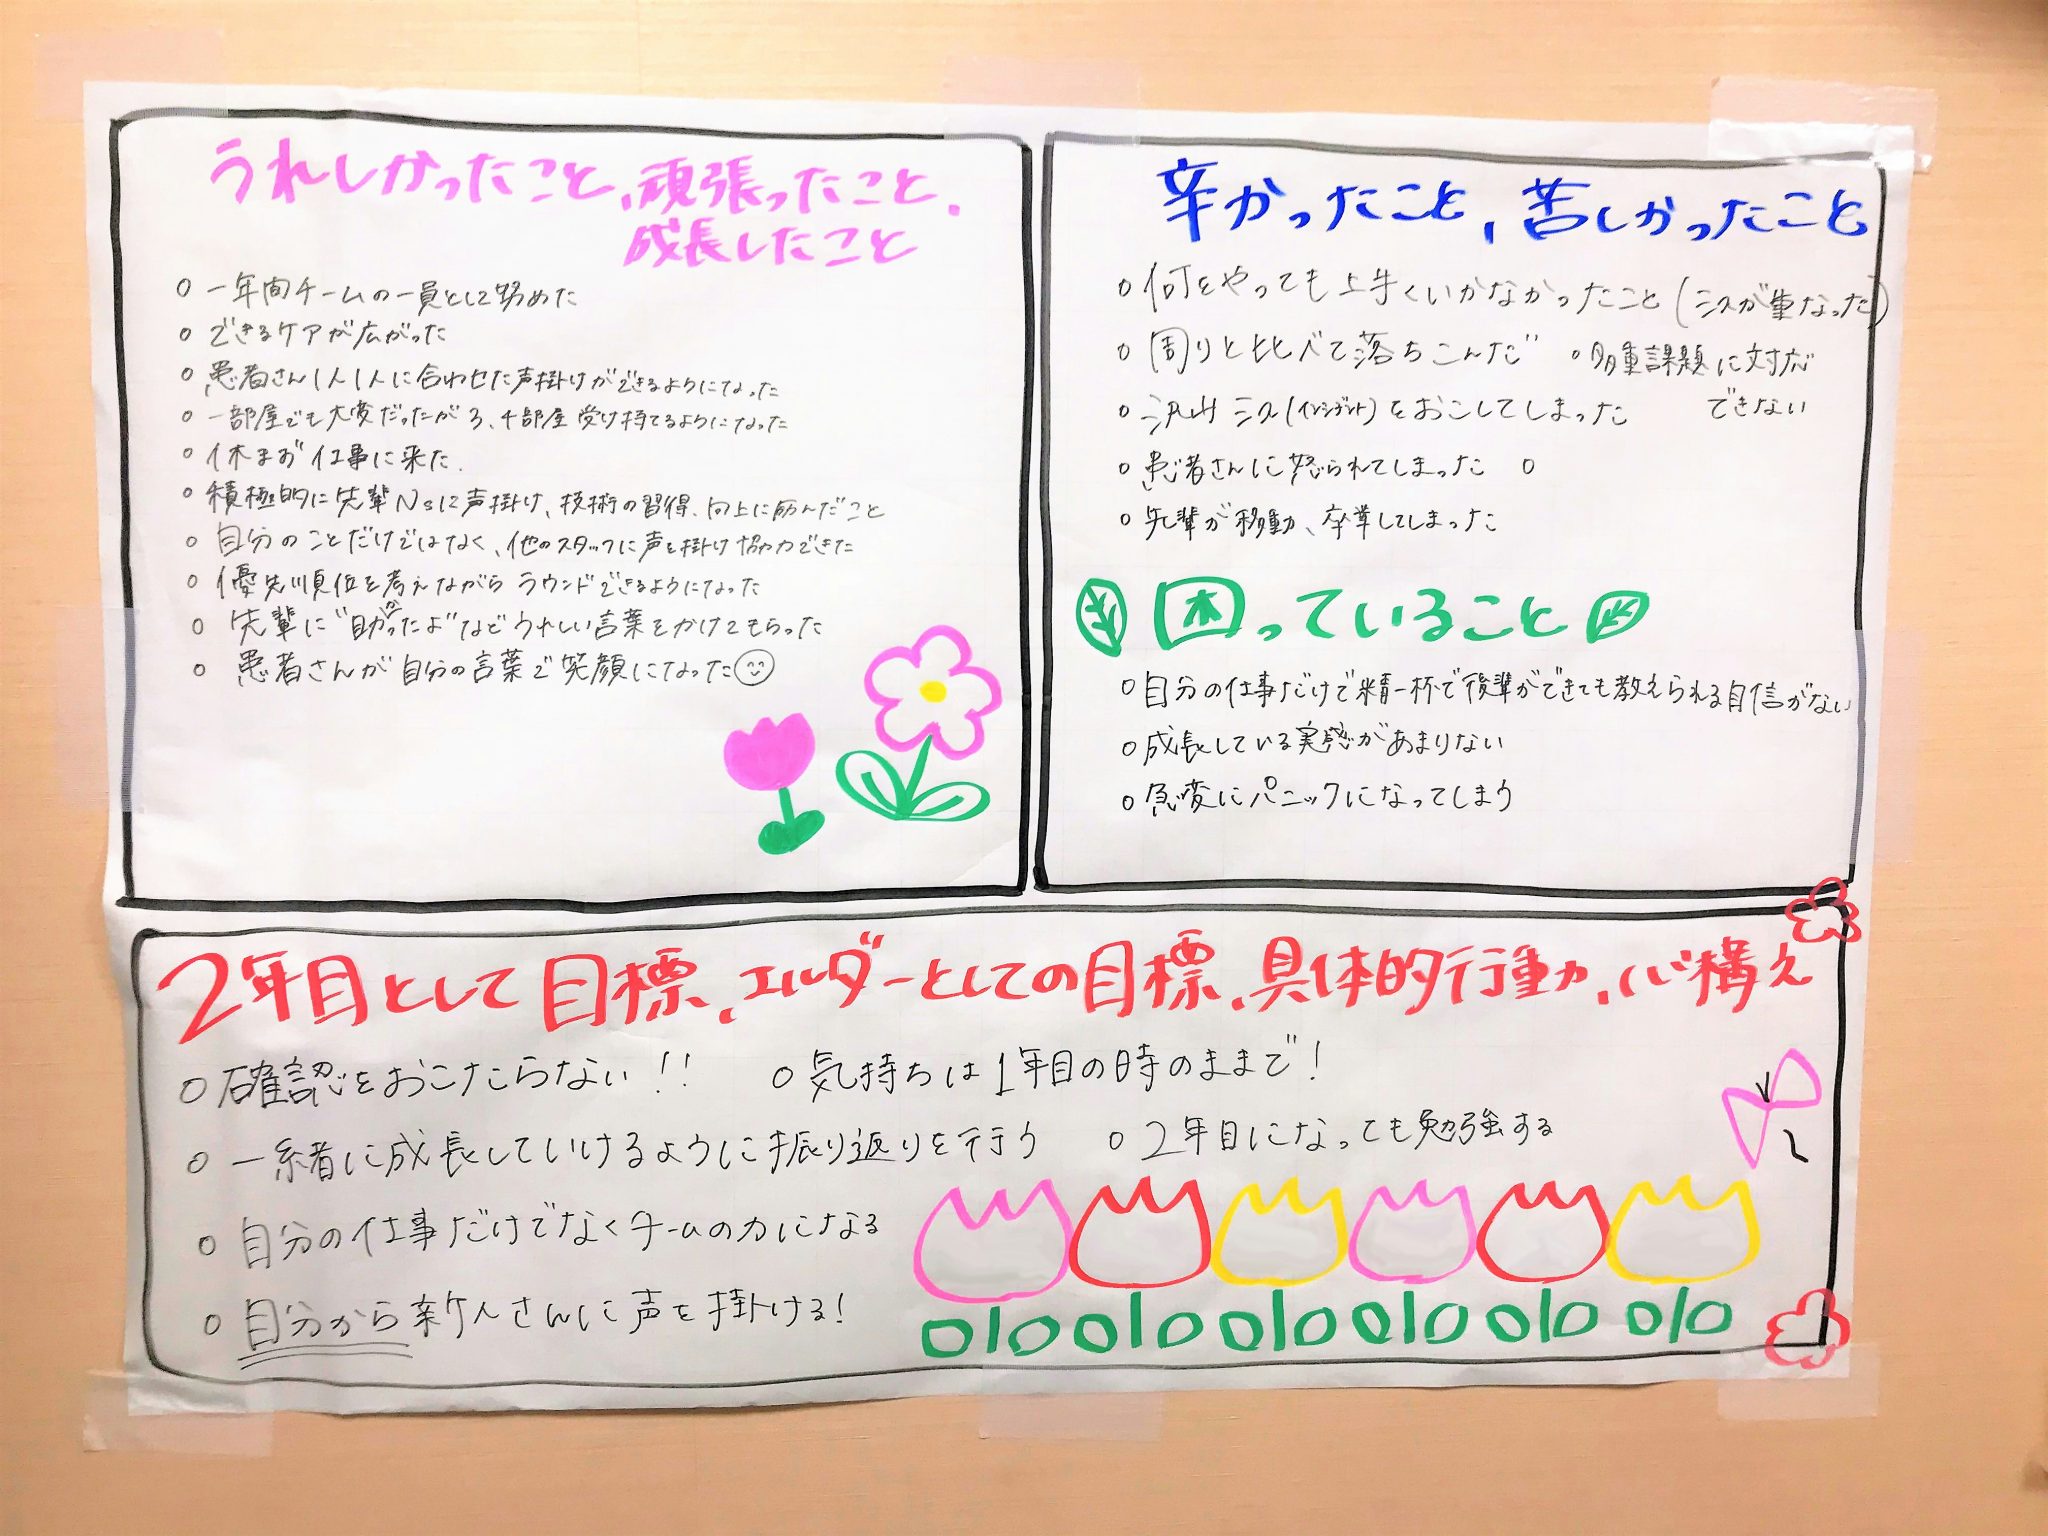 うれしかったこと、頑張ったこと、
成長したこと
○ 一年間チームの一員として努めた
○ できるケアが広がった
○ 患者さん1人1人に合わせた声掛けができるようになった
○ 一部屋でも大変だったが3、4部屋受け持てるようになった
○ 休まず仕事に来た.
○ 積極的に先輩Nsに声掛け、技術の習得、向上に励んだこと
○ 自分のことだけではなく、他のスタッフに声を掛け協力できた
○ 優先順位を考えながらラウンドできるようになった
○ 先輩に"助かったよ"などうれしい言葉をかけてもらった
○ 患者さんが自分の言葉で笑顔になった
辛かったこと、苦しかったこと
○ 何をやっても上手くいかなかったこと(ミスが重なった)
○ 周りと比べて落ちこんだ ○ 多重課題に対応
できない
○ 沢山ミス(インシデント)をおこしてしまった
○ 患者さんに怒られてしまった ○
○ 先輩が移動、卒業してしまった
困っていること
○ 自分の仕事だけで精一杯で後輩ができても教えられる自信がない
○ 成長している実感があまりない
○ 急変にパニックになってしまう
2年目として目標、エルダーとしての目標、具体的行動、心構え
○ 確認をおこたらない!! ○ 気持ちは1年目の時のままで!
○ 一緒に成長していけるように振り返りを行う ○ 2年目になっても勉強する
○ 自分の仕事だけでなくチームの力になる
○ 自分から新人さんに声を掛ける!